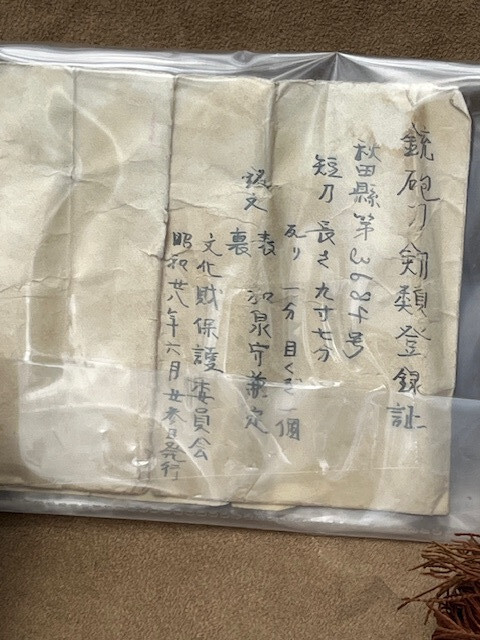 銃砲刀剣類登録証
秋田縣第3684号
短刀 長さ 九寸七分
反り 一分 目くぎ 一個
銘文 表 和泉守兼定
裏
文化財保護委員会
昭和廿八年六月廿参日発行